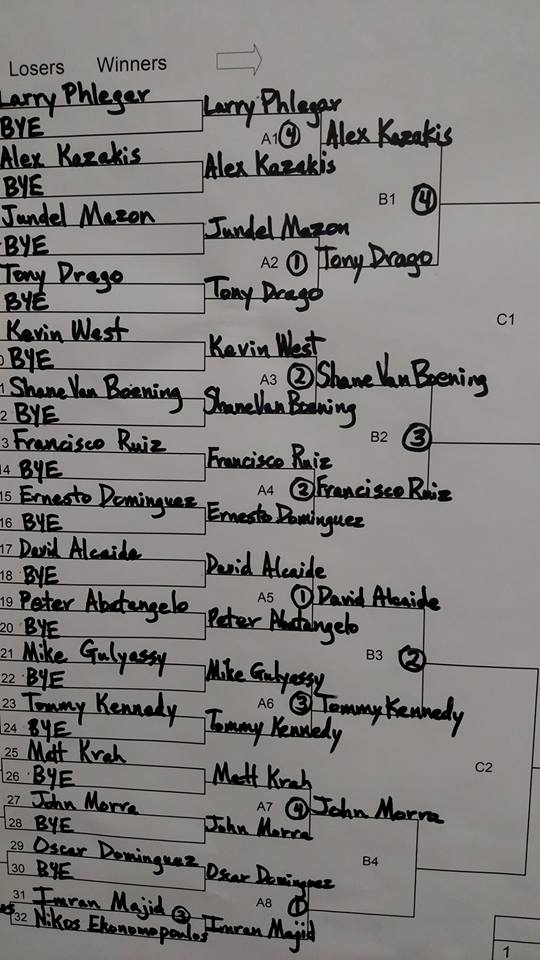 Losers Winners
Larry Phlegar
BYE
Alex Kazakis
BYE
Jundel Mazon
BYE
Tony Drago
BYE
Kevin West
0 BYE
1 Shane Van Boening
2 BYE
3 Francisco Ruiz
14 BYE
15 Ernesto Dominguez
16 BYE
17 David Alcaide
18 BYE
19 Peter Abatangelo
20 BYE
21 Mike Gulyassy
22 BYE
23 Tommy Kennedy
24 BYE
25 Matt Krah
26 BYE
27 John Morra
28 BYE
29 Oscar Dominguez
30 BYE
31 Imran Majid 3
32 Nikos Ekonomopoulos
Larry Phlegar
A1 4
Alex Kazakis
Jundel Mazon
A2 1
Tony Drago
Kevin West
A3 2
Shane Van Boening
Francisco Ruiz
A4 2
Ernesto Dominguez
David Alcaide
A5 1
Peter Abatangelo
Mike Gulyassy
A6 3
Tommy Kennedy
Matt Krah
A7 4
John Morra
Oscar Dominguez
A8 1
Imran Majid
Alex Kazakis
B1 4
Tony Drago
Shane Van Boening
B2 3
Francisco Ruiz
David Alcaide
B3 2
Tommy Kennedy
John Morra
B4
C1
C2
1